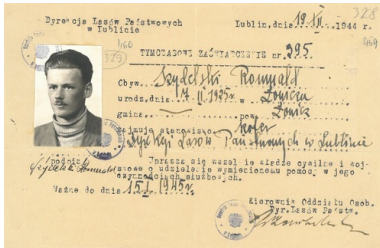 Dyrekcja Lasów Państwowych
w Lublinie
Lublin, dnia 19 XII 1944 r.
328
329
TYMCZASOWE ZAŚWIADCZENIE nr 395.
Obyw. Szydelski Romuald
urodz. dnia 17. II. 1925 r. w
gmina pow.
zajmuje stanowisko
Dyrekcji Lasów Państwowych w Lublinie
podpis
Uprasza się wszelkie władze cywilne i woj-
skowe o udzielenie wymienionemu pomocy w jego
czynnościach służbowych.
Ważne do dnia 15.I.1945 r.
Kierownik Oddziału Osob.
Dyr. Lasów Państw.